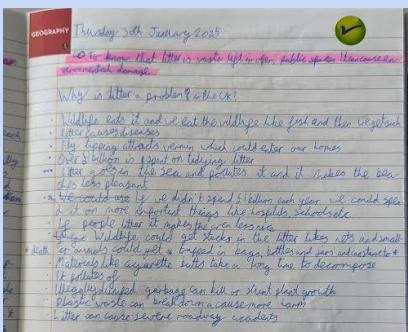 GEOGRAPHY
Thursday 30th January 2025
LO To know that litter is waste left in often public spaces it can cause en-
viromental damage
Why is litter a problem in the UK?
Wildlife eats it and we eat the wildlife like fish and then we get sick
Litter causes diseases
Fly tipping attracts vermin which could enter our homes
Over £1 billion is spent on tidying litter
Litter goes in the sea and pollutes it and it makes the bea-
ches less pleasant
If we didn't spend £1 billion each year we could spen-
d it on more important things like hospitals, schools etc.
If people litter it makes the area less nice
Wildlife could get stuck in the litter likes nets and small-
er animals could get trapped in bags, bottles and jars and
death
Materials like cigarette butts take a long time to decompose
It pollutes
Illegally dumped garbage can kill or stunt plant growth
Plastic waste can break down a cause more harm
Litter can cause severe roadway